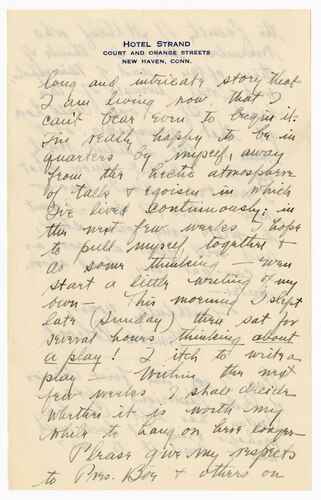 HOTEL STRAND
COURT AND ORANGE STREETS
NEW HAVEN, CONN.
long and intricate story that
I am living now that I
can't bear even to begin it.
I'm really happy to be in
quarters by myself, away
from the hectic atmosphere
of talk & egoism in which
I've lived continuously; in
the next few weeks I hope
to pull myself together &
do some thinking — even
start a little writing of my
own — This morning I slept
late (Sunday) then sat for
several hours thinking about
a play! I itch to write a
play — Within the next
few weeks I shall decide
whether it is worth my
while to hang on here longer
Please give my respects
to Pres. Boe & others on